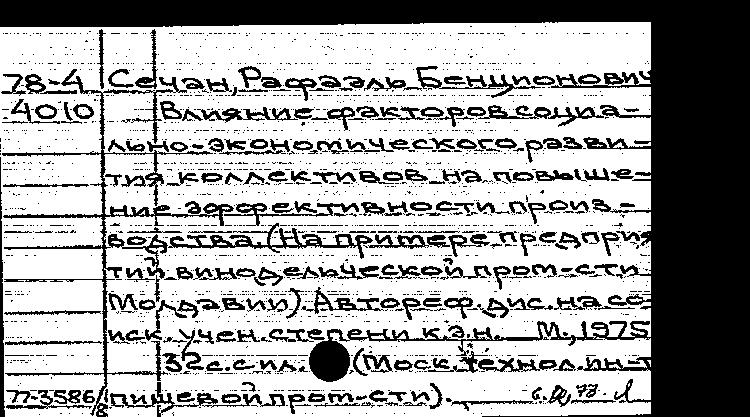 78-4 Сечан, Рафаэль Бенционович
4010 Влияние факторов социа-
льно-экономического разви-
тия коллективов на повыше-
ние эффективности произ-
водства. (На примере предприя
тий винодельческой пром-сти
Молдавии). Автореф. дис. на со-
иск. учен. степени к.э.н. М., 1975
32 с. с ил. (Моск. технол. ин-т
77-3586/8 пищевой пром-сти).